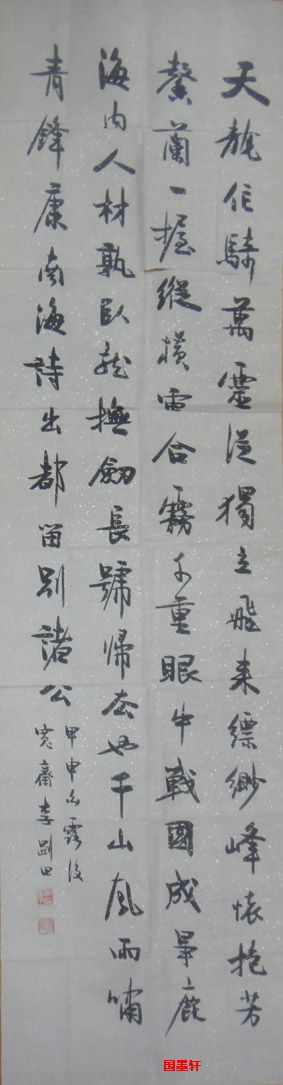 天龍作騎萬靈從獨立飛来縹緲峰懷抱芳
馨蘭一握縱橫宙合霧千重眼中戰國成爭鹿
海内人材孰臥龍撫劍長號歸去也千山風雨嘯
青鋒康南海詩出都留別諸公
甲申白露後
寬齋李剛田
国墨轩